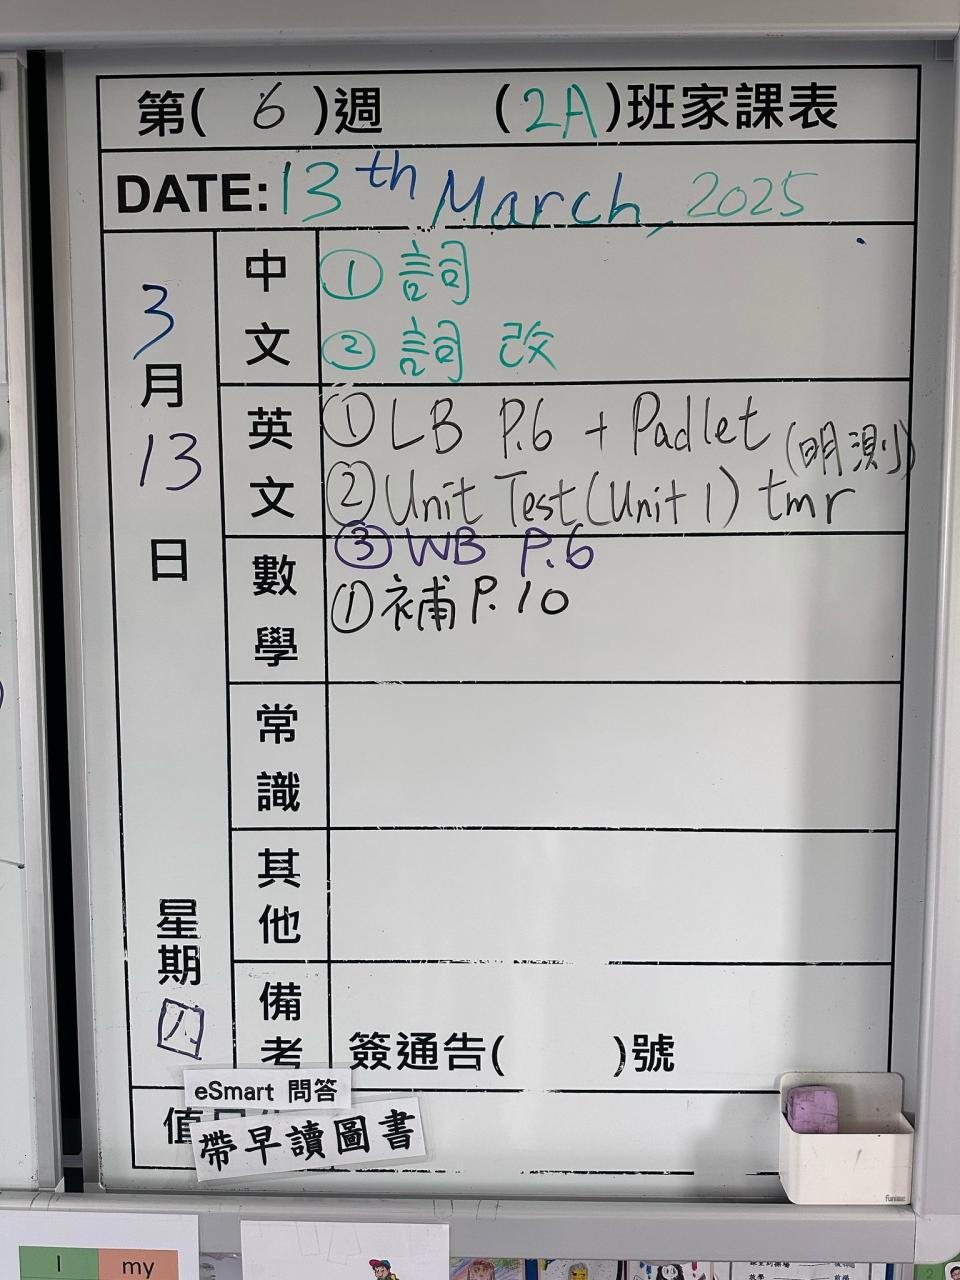 第( 6 )週 (2A)班家課表
DATE: 13th March, 2025
3月13日 星期四
中文
① 詞
② 詞 改
英文
① LB P.6 + Padlet
② Unit Test (Unit 1) tmr (明測)
③ WB P.6
數學
① 補 P.10
常識
其他
備考
簽通告( )號
eSmart 問答
帶早讀圖書
funinc
I my